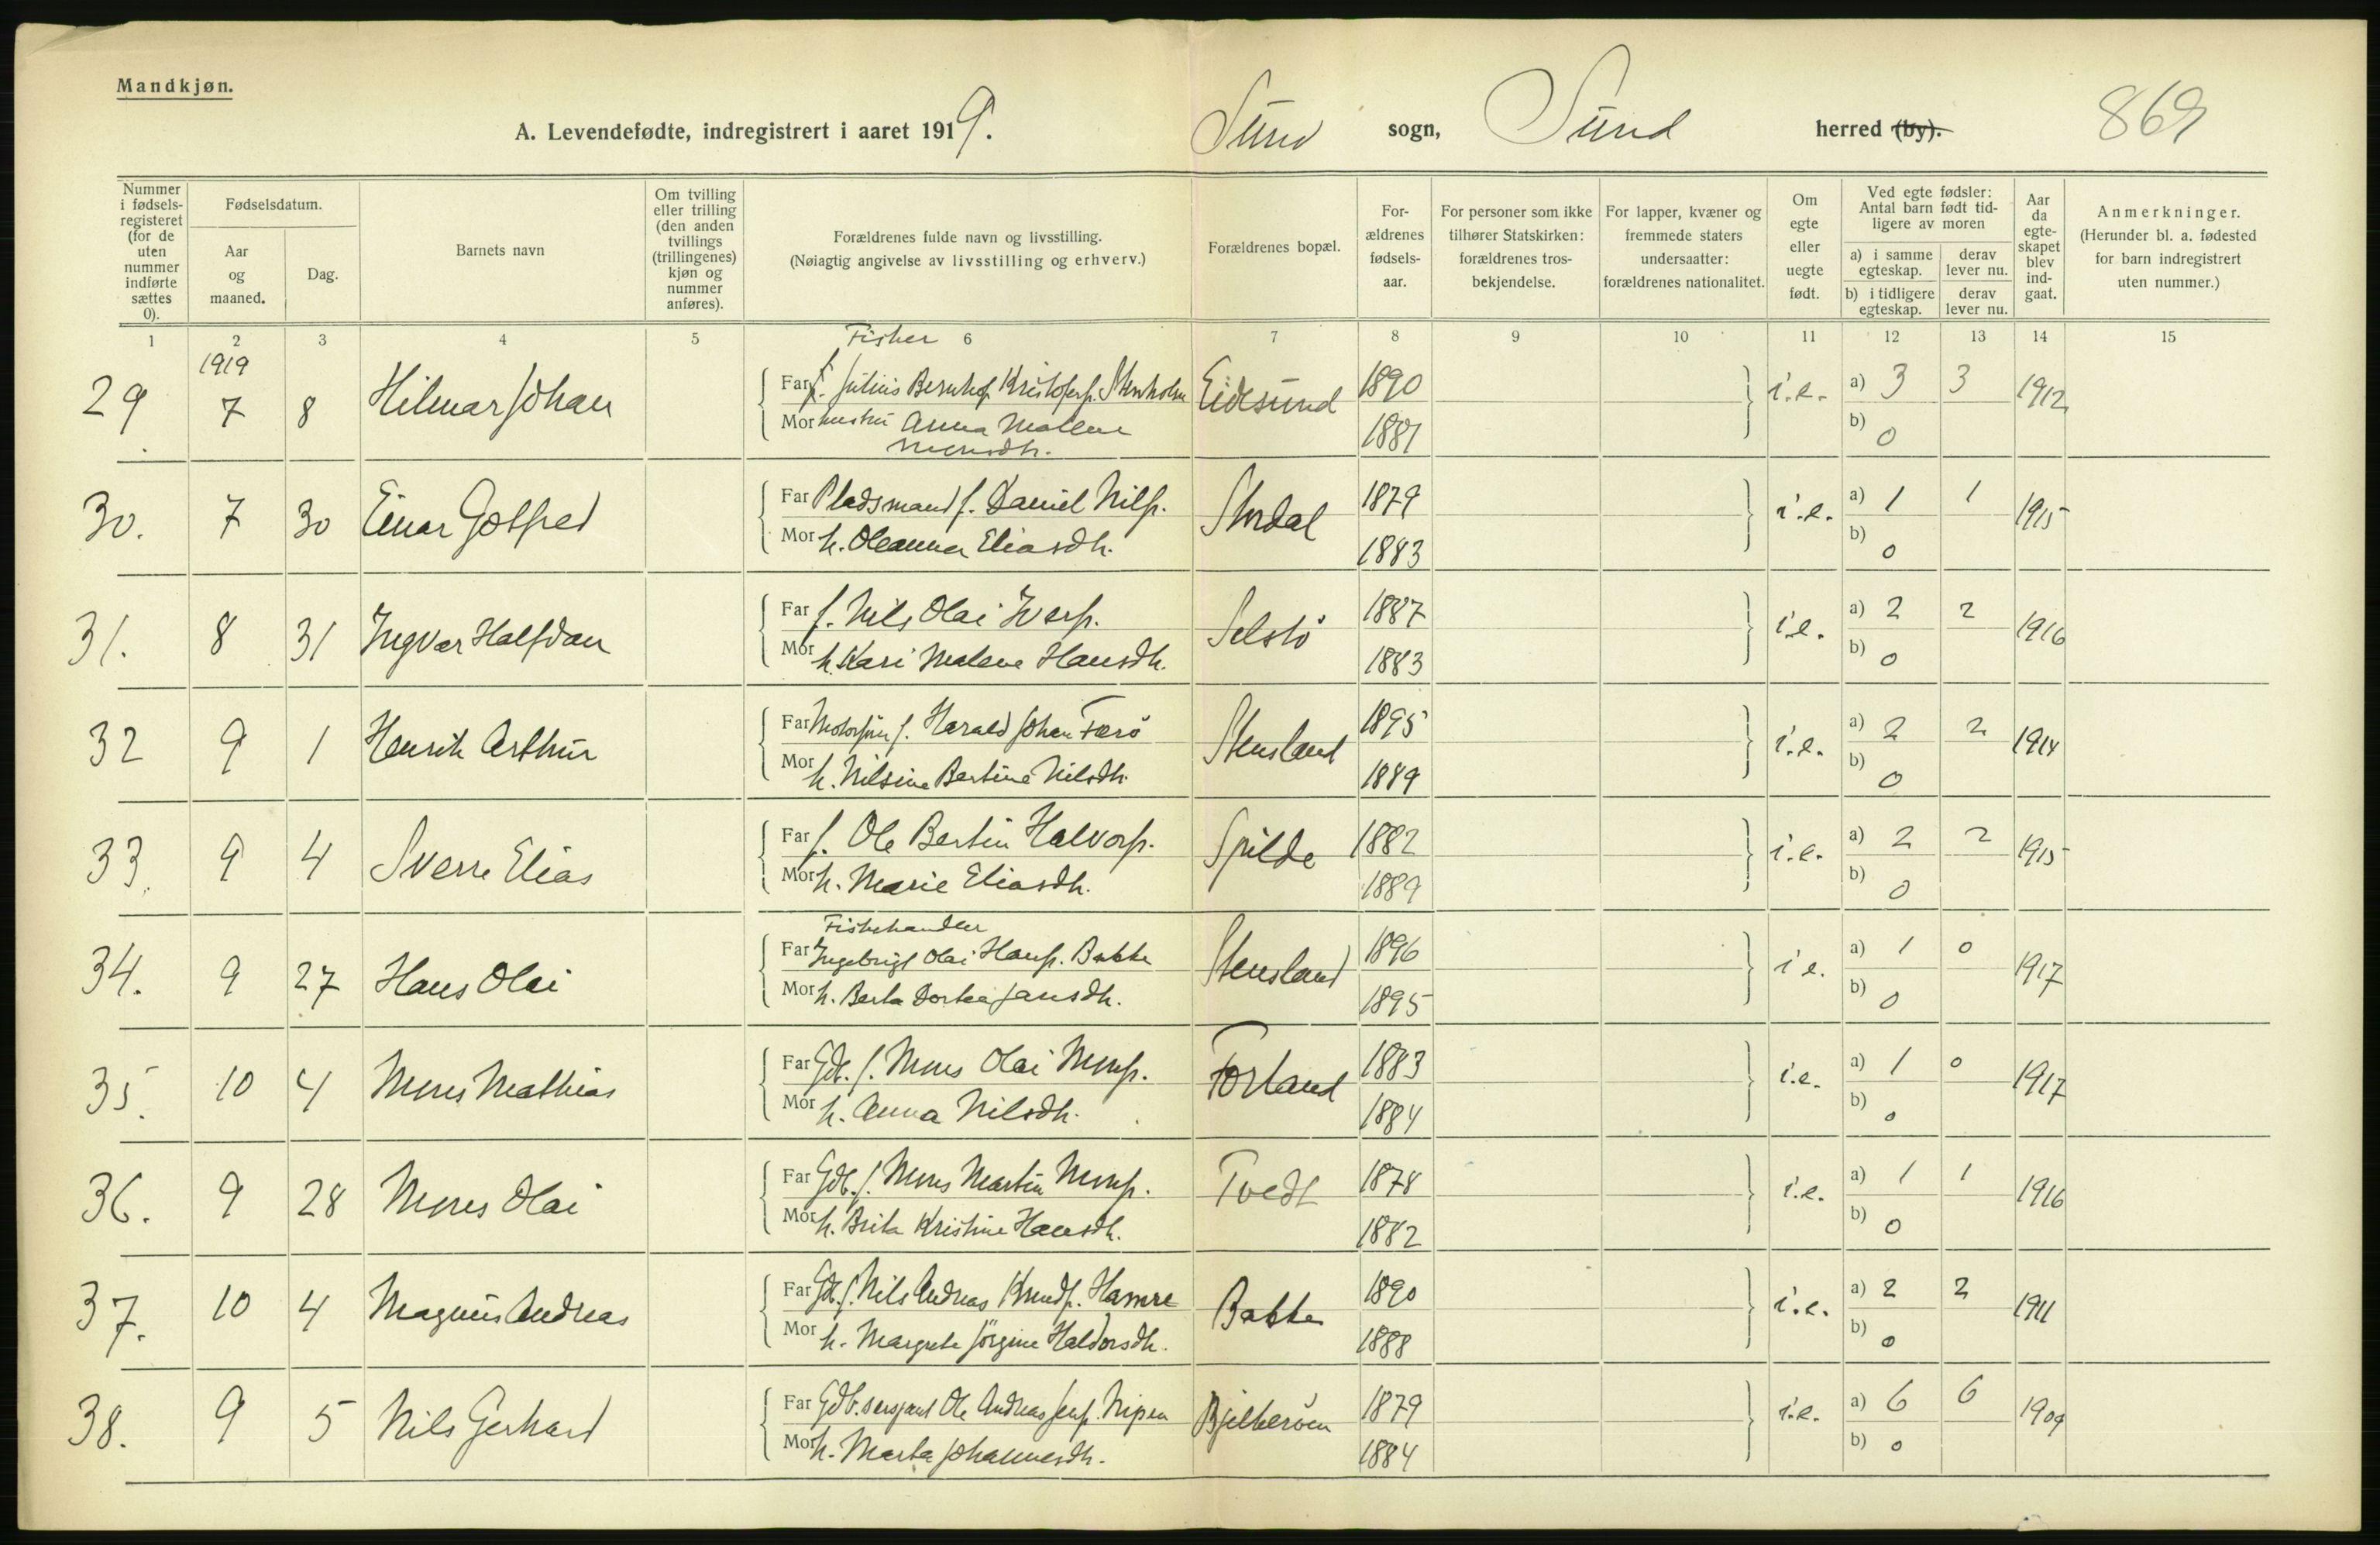 Mandkjøn.
A. Levendefødte, indregistrert i aaret 1919. Sund sogn, Sund herred (by). 869
Nummer i fødsels-registeret (for de uten nummer indførte sættes 0).
Fødselsdatum.
Aar og maaned.
Dag.
Barnets navn
Om tvilling eller trilling (den anden tvillings (trillingenes) kjøn og nummer anføres).
Forældrenes fulde navn og livsstilling.
(Nøiagtig angivelse av livsstilling og erhverv.)
Forældrenes bopæl.
For-ældrenes fødsels-aar.
For personer som ikke tilhører Statskirken: forældrenes tros-bekjendelse.
For lapper, kvæner og fremmede staters undersaatter: forældrenes nationalitet.
Om egte eller uegte født.
Ved egte fødsler: Antal barn født tid-ligere av moren
a) i samme egteskap. derav lever nu.
b) i tidligere egteskap. derav lever nu.
Aar da egte-skapet blev ind-gaat.
Anmerkninger.
(Herunder bl. a. fødested for barn indregistrert uten nummer.)
1 2 3 4 5 6 7 8 9 10 11 12 13 14 15
1919 Fisker
29. 7 8 Hilmar Johan Far f. Julius Bernhof Kristofers. Stenholm Eidesund 1890 i.e. a) 3 3 1912
Mor hustru Anna Malene 1887 b) 0
Monsdtr.
30. 7 30 Einar Gotfred Far Pladsmand f. Daniel Nilss. Stordal 1879 i.e. a) 1 1 1915
Mor h. Oleanna Eliasdtr. 1883 b) 0
31. 8 31 Ingvar Halfdan Far f. Nils Olai Ivers. Selstö 1887 i.e. a) 2 2 1916
Mor h. Kari Malene Hansdtr. 1883 b) 0
32 9 1 Henrik Arthur Far f. Harald Johan Færö Stensland 1895 i.e. a) 2 2 1914
Mor h. Nilsine Bertine Nilsdtr. 1889 b) 0
33. 9 4 Sverre Elias Far f. Ole Bertin Halvors. Spilde 1882 i.e. a) 2 2 1915
Mor h. Marie Eliasdtr. 1889 b) 0
Fiskehandler
34. 9 27 Hans Olai Far Ingebrigt Olai Hanss. Bakke Stensland 1896 i.e. a) 1 0 1917
Mor h. Berta Dortea Jansdtr. 1895 b) 0
35. 10 4 Mons Mathias Far Gdb. f. Mons Olai Monss. Forland 1883 i.e. a) 1 0 1917
Mor h. Anna Nilsdtr. 1884 b) 0
36. 9 28 Mons Olai Far Gdb. f. Mons Martin Monss. Tvedt 1878 i.e. a) 1 1 1916
Mor h. Brita Kristine Hansdtr. 1882 b) 0
37. 10 4 Magnus Andreas Far Gdb. f. Nils Andreas Knuds. Hamre Bakke 1890 i.e. a) 2 2 1911
Mor h. Margrete Jörgine Haldorsdtr. 1888 b) 0
38. 9 5 Nils Gerhard Far Gdb. sersjant Ole Andreas Jens. Nipen Bjelkeröen 1879 i.e. a) 6 6 1909
Mor h. Marta Johannesdtr. 1884 b) 0